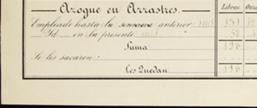 Azogue en Arrastres. Libras Onz
Empleado hasta la semana anterior
Id. en la presente
Suma 126
Se les sacaron:
Les Quedan 126